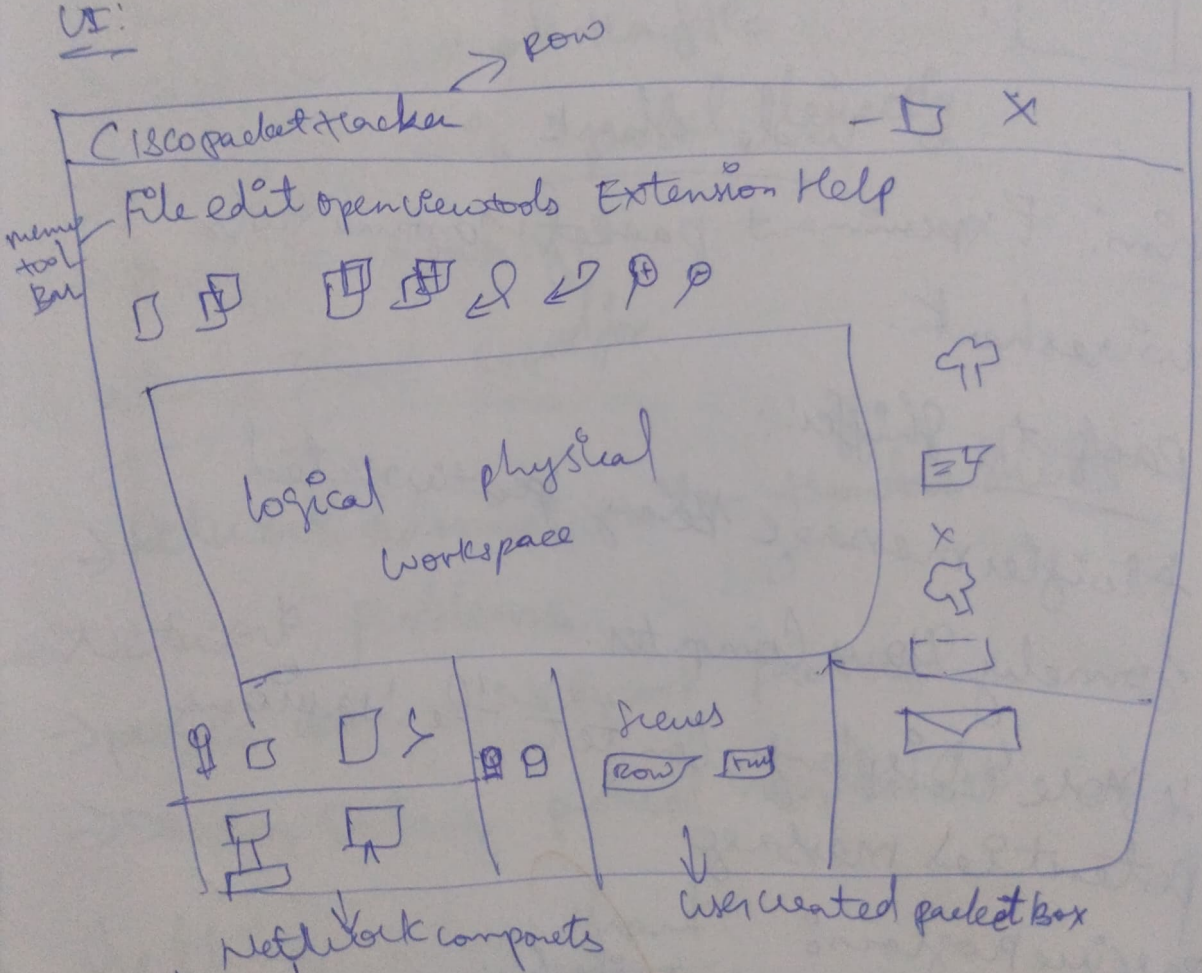 UI:
ROW
Ciscopacket tracker
File edit open view tools Extension Help
menu
tool
Bar
logical physical
workspace
Scenes
ROW
Network componets
user created packet Box